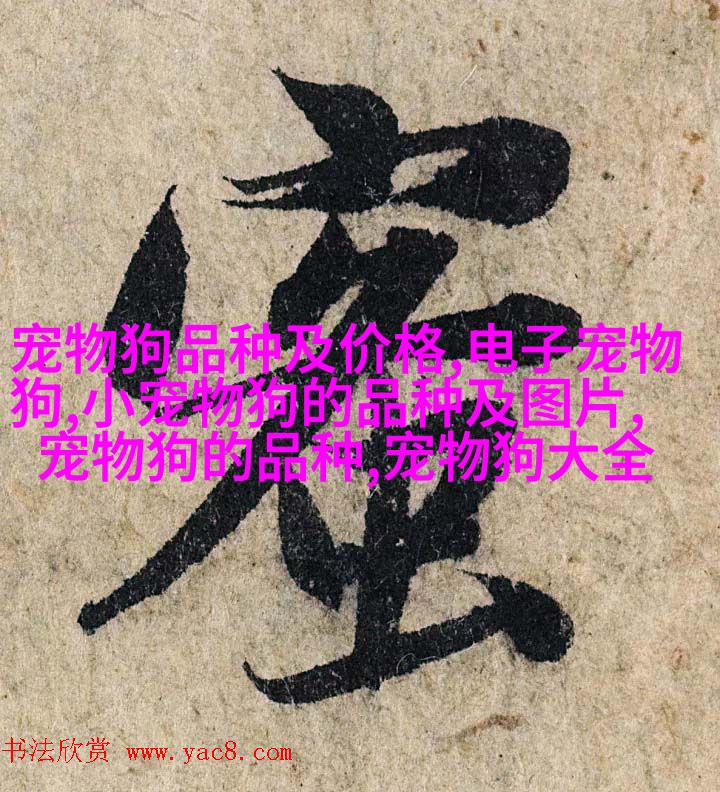 蜜
宠物狗品种及价格,电子宠物
狗,小宠物狗的品种及图片,
宠物狗的品种,宠物狗大全
书法欣赏 www.yac8.com